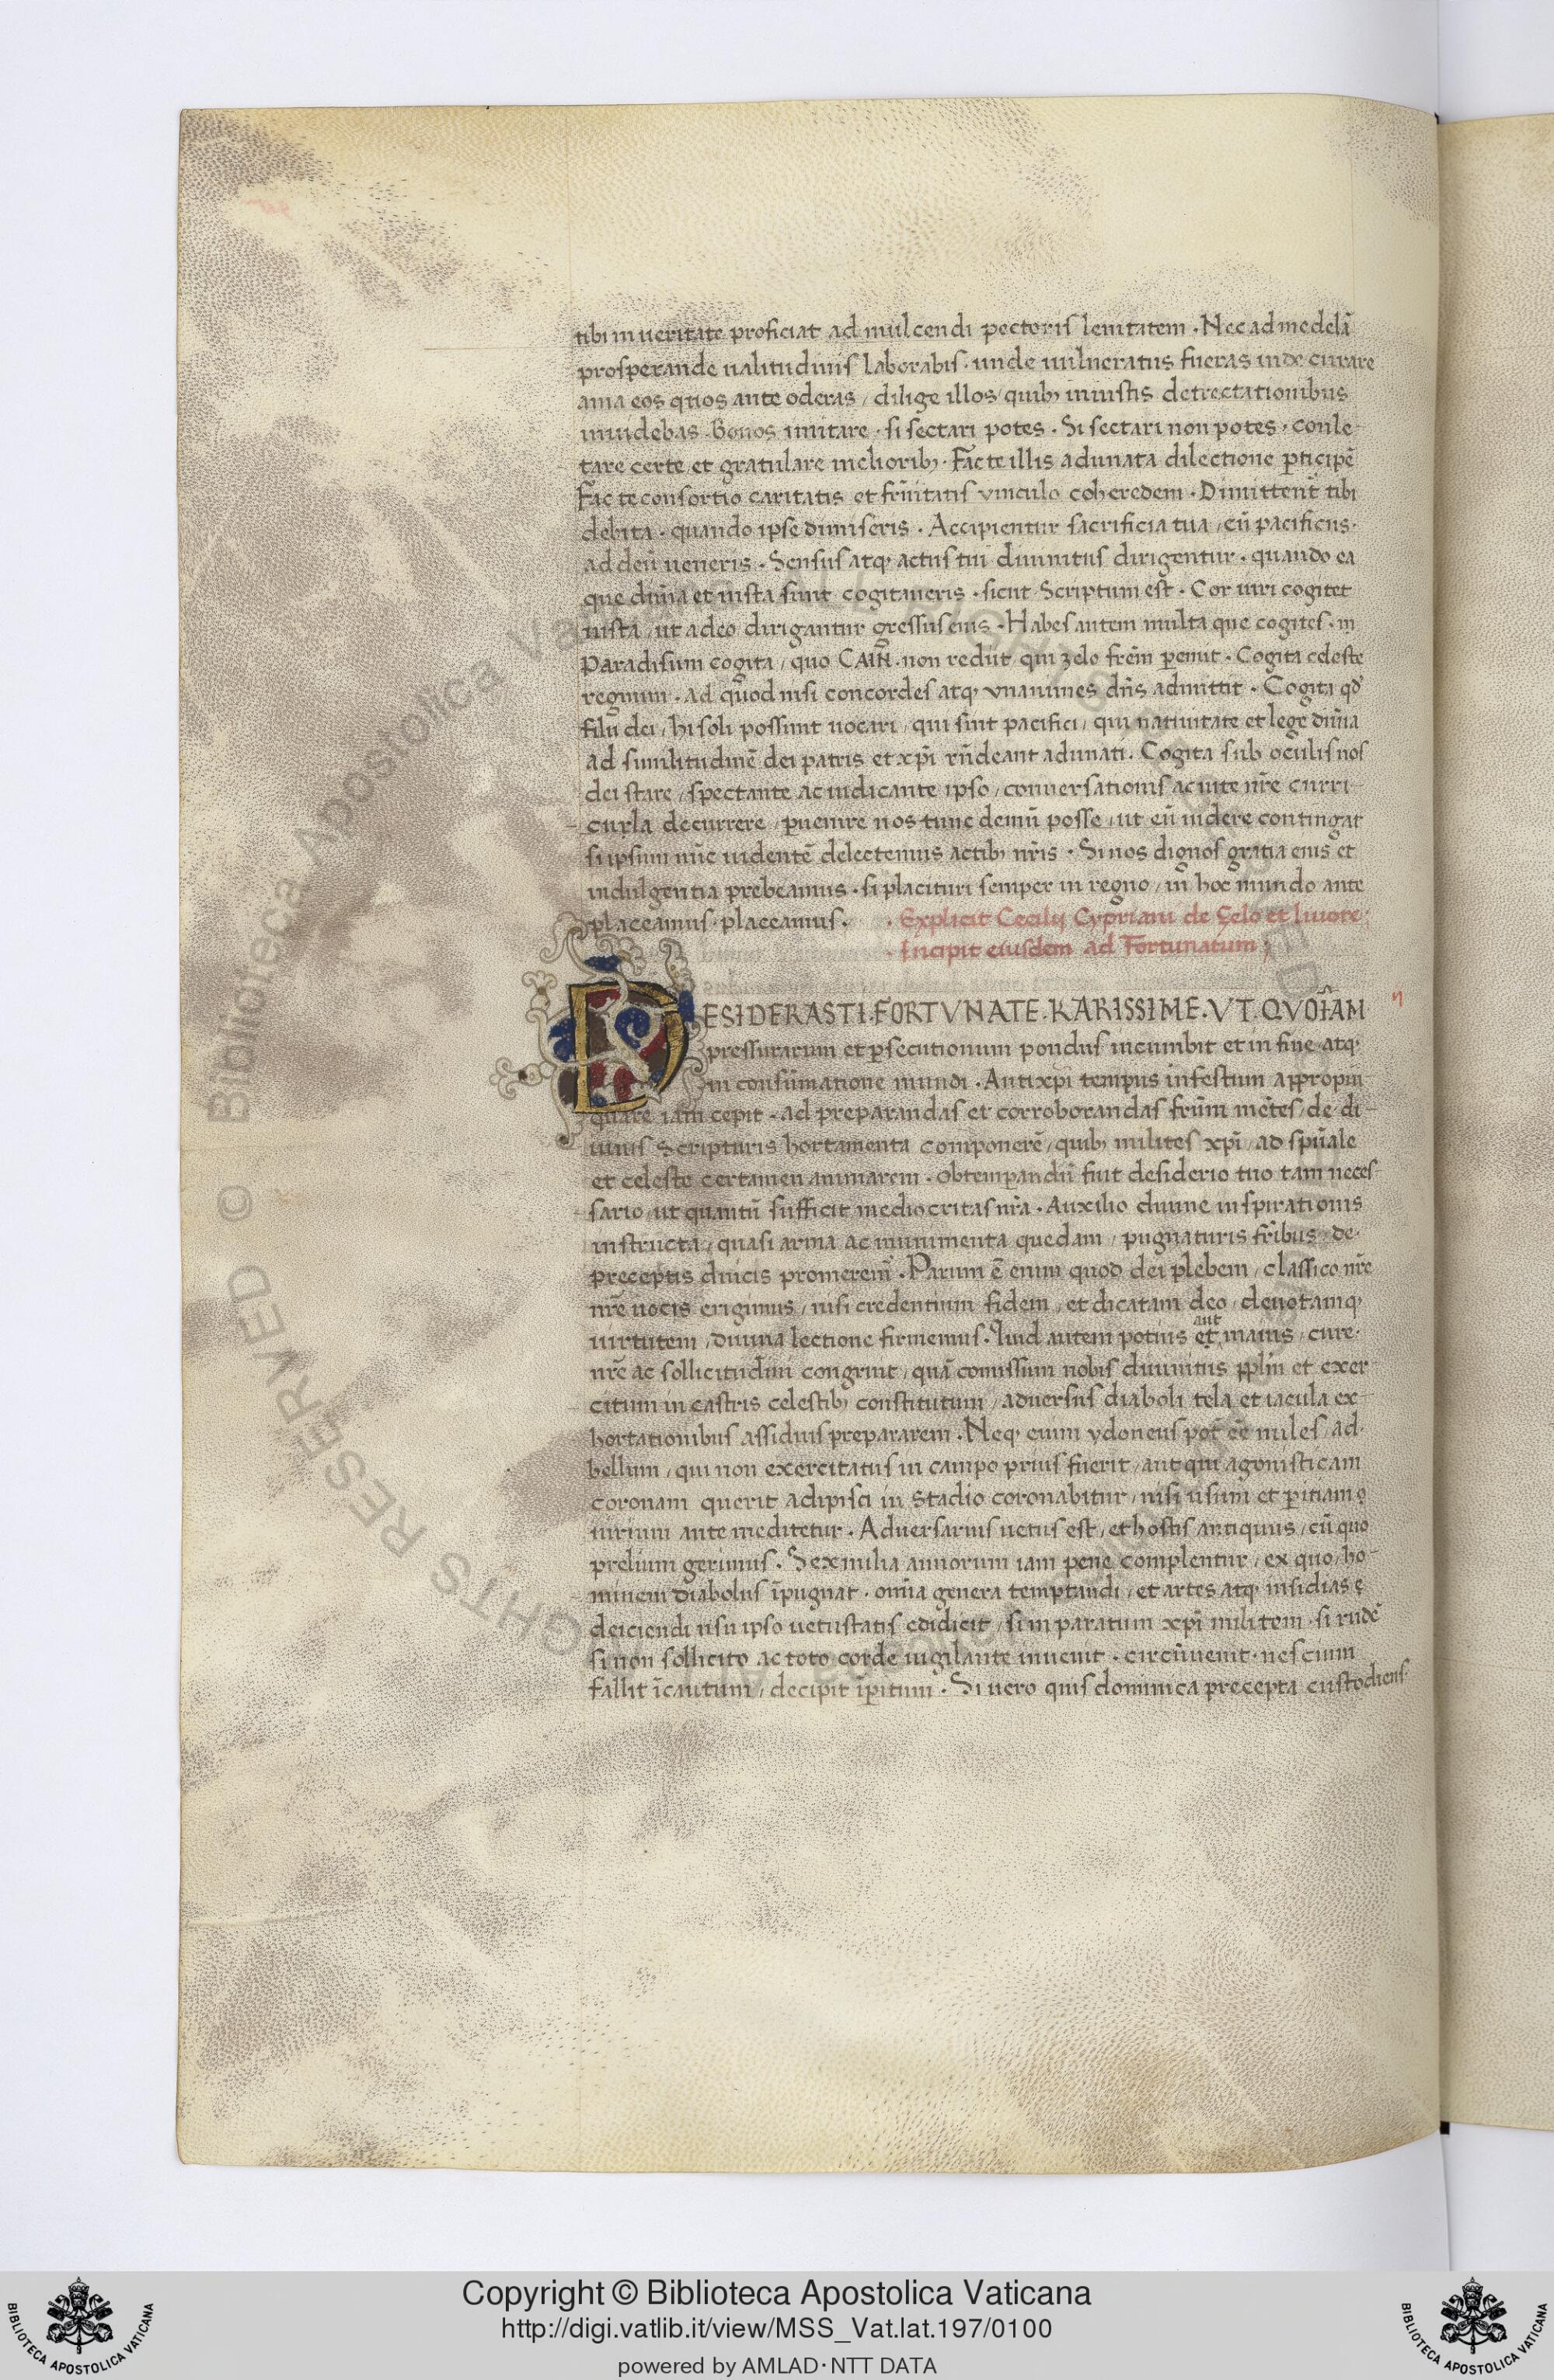 tibi in ueritate proficiat ad mulcendi pectoris lenitatem · Nec ad medelā
prosperande ualitudinis laborabis · unde uulneratus fueras inde curare
ama eos quos ante oderas / dilige illos / quibꝫ iniustis detrectationibus
inuidebas · Bonos imitare · si sectari potes · Si sectari non potes · conle-
tare certe / et gratulare melioribꝫ · Fac te illis adunata dilectione ꝑticipē
Fac te consortio caritatis et fr̄nitatis vinculo coheredem · Dimittent̄ tibi
debita · quando ipse dimiseris · Accipientur sacrificia tua / cū pacificus ·
ad deū ueneris · Sensus atqꝫ actus tui diuinitus dirigentur · quando ea
que diuīa et iusta sunt cogitaueris · sicut Scriptum est · Cor uiri cogitet
iusta / ut a deo dirigantur gressus eius · Habes autem multa que cogites · in
Paradisum cogita / quo CAIN̄ · non rediit / qui zelo frēm ꝑemit · Cogita celeste
regnum · ad quod nisi concordes atqꝫ vnanimes dn̄s admittit · Cogita qđ
filii dei / hi soli possunt uocari / qui sint pacifici / qui natiuitate et lege diuīa
ad similitudinē dei patris et xp̄i rn̄deant adunati. Cogita sub oculis nos
dei stare / spectante ac iudicante ipso / conuersationis ac uite nr̄e curri-
curla decurrere / ꝑuenire nos tunc demū posse / ut eū uidere contingat
si ipsum nūc uidentē delectemus actibꝫ nr̄is · Si nos dignos gratia eius et
indulgentia prebeamus · si placituri semper in regno / in hoc mundo ante
placeamus · placeamus ·
· Explicit Cecilij Cypriani de Çelo et liuore ;
· Incipit eiusdem ad Fortunatum ;
DESIDERASTI · FORTVNATE · KARISSIME · VT · QVOĪAM
pressurarum et ꝑsecutionum pondus incumbit et in fine atqꝫ
in consūmatione mundi · Antixp̄i tempus infestum appropin
quare iam cepit · ad preparandas et corroborandas frūm mētes / de di-
uinis Scripturis hortamenta componerē / quibꝫ milites xp̄i / ad spūale
et celeste certamen animarem · obtemꝑandū fuit desiderio tuo tam neces-
sario / ut quantū sufficit mediocritas nr̄a · Auxilio diuine inspirationis
instructa / quasi arma ac munimenta quedam / pugnaturis fr̄ibus / de ·
preceptis diuicis promerem̄ · Parum ē enim quod dei plebem / classico nr̄e
nr̄e uocis erigimus / nisi credentium fidem / et dicatam deo / deuotamqꝫ
uirtutem / diuina lectione firmemus · Iuid autem potius et aut maius / cure ·
nr̄e ac sollicitudīni congruit / quā comissum nobis diuinitus pp̄lm et exer
citum in castris celestibꝫ constitutum / aduersus diaboli tela et iacula ex-
hortationibus assiduis prepararem · Neqꝫ enim ydoneus pot̄ ēē miles / ad ·
bellum / qui non exercitatus in campo prius fuerit / aut qui agonisticam
coronam querit adipisci in stadio coronabitur / nisi usum et ꝑitiam
uirium ante meditetur · Aduersarius uetus est / et hostis antiquus / cū quo
prelium gerimus · Sex milia annorum iam pene complentur / ex quo / ho-
minem diabolus īpugnat · omīa genera temptandi / et artes atqꝫ insidias
deiciendi usu ipso uetustatis edidicit / si in paratum xp̄i militem · si rudē
si non sollicito ac toto corde uigilante inuenit · circūuenit · nescium
fallit īcautum / decipit īꝑitum · Si uero quis dominica precepta custodiens ·
Copyright © Biblioteca Apostolica Vaticana
http://digi.vatlib.it/view/MSS_Vat.lat.197/0100
powered by AMLAD·NTT DATA